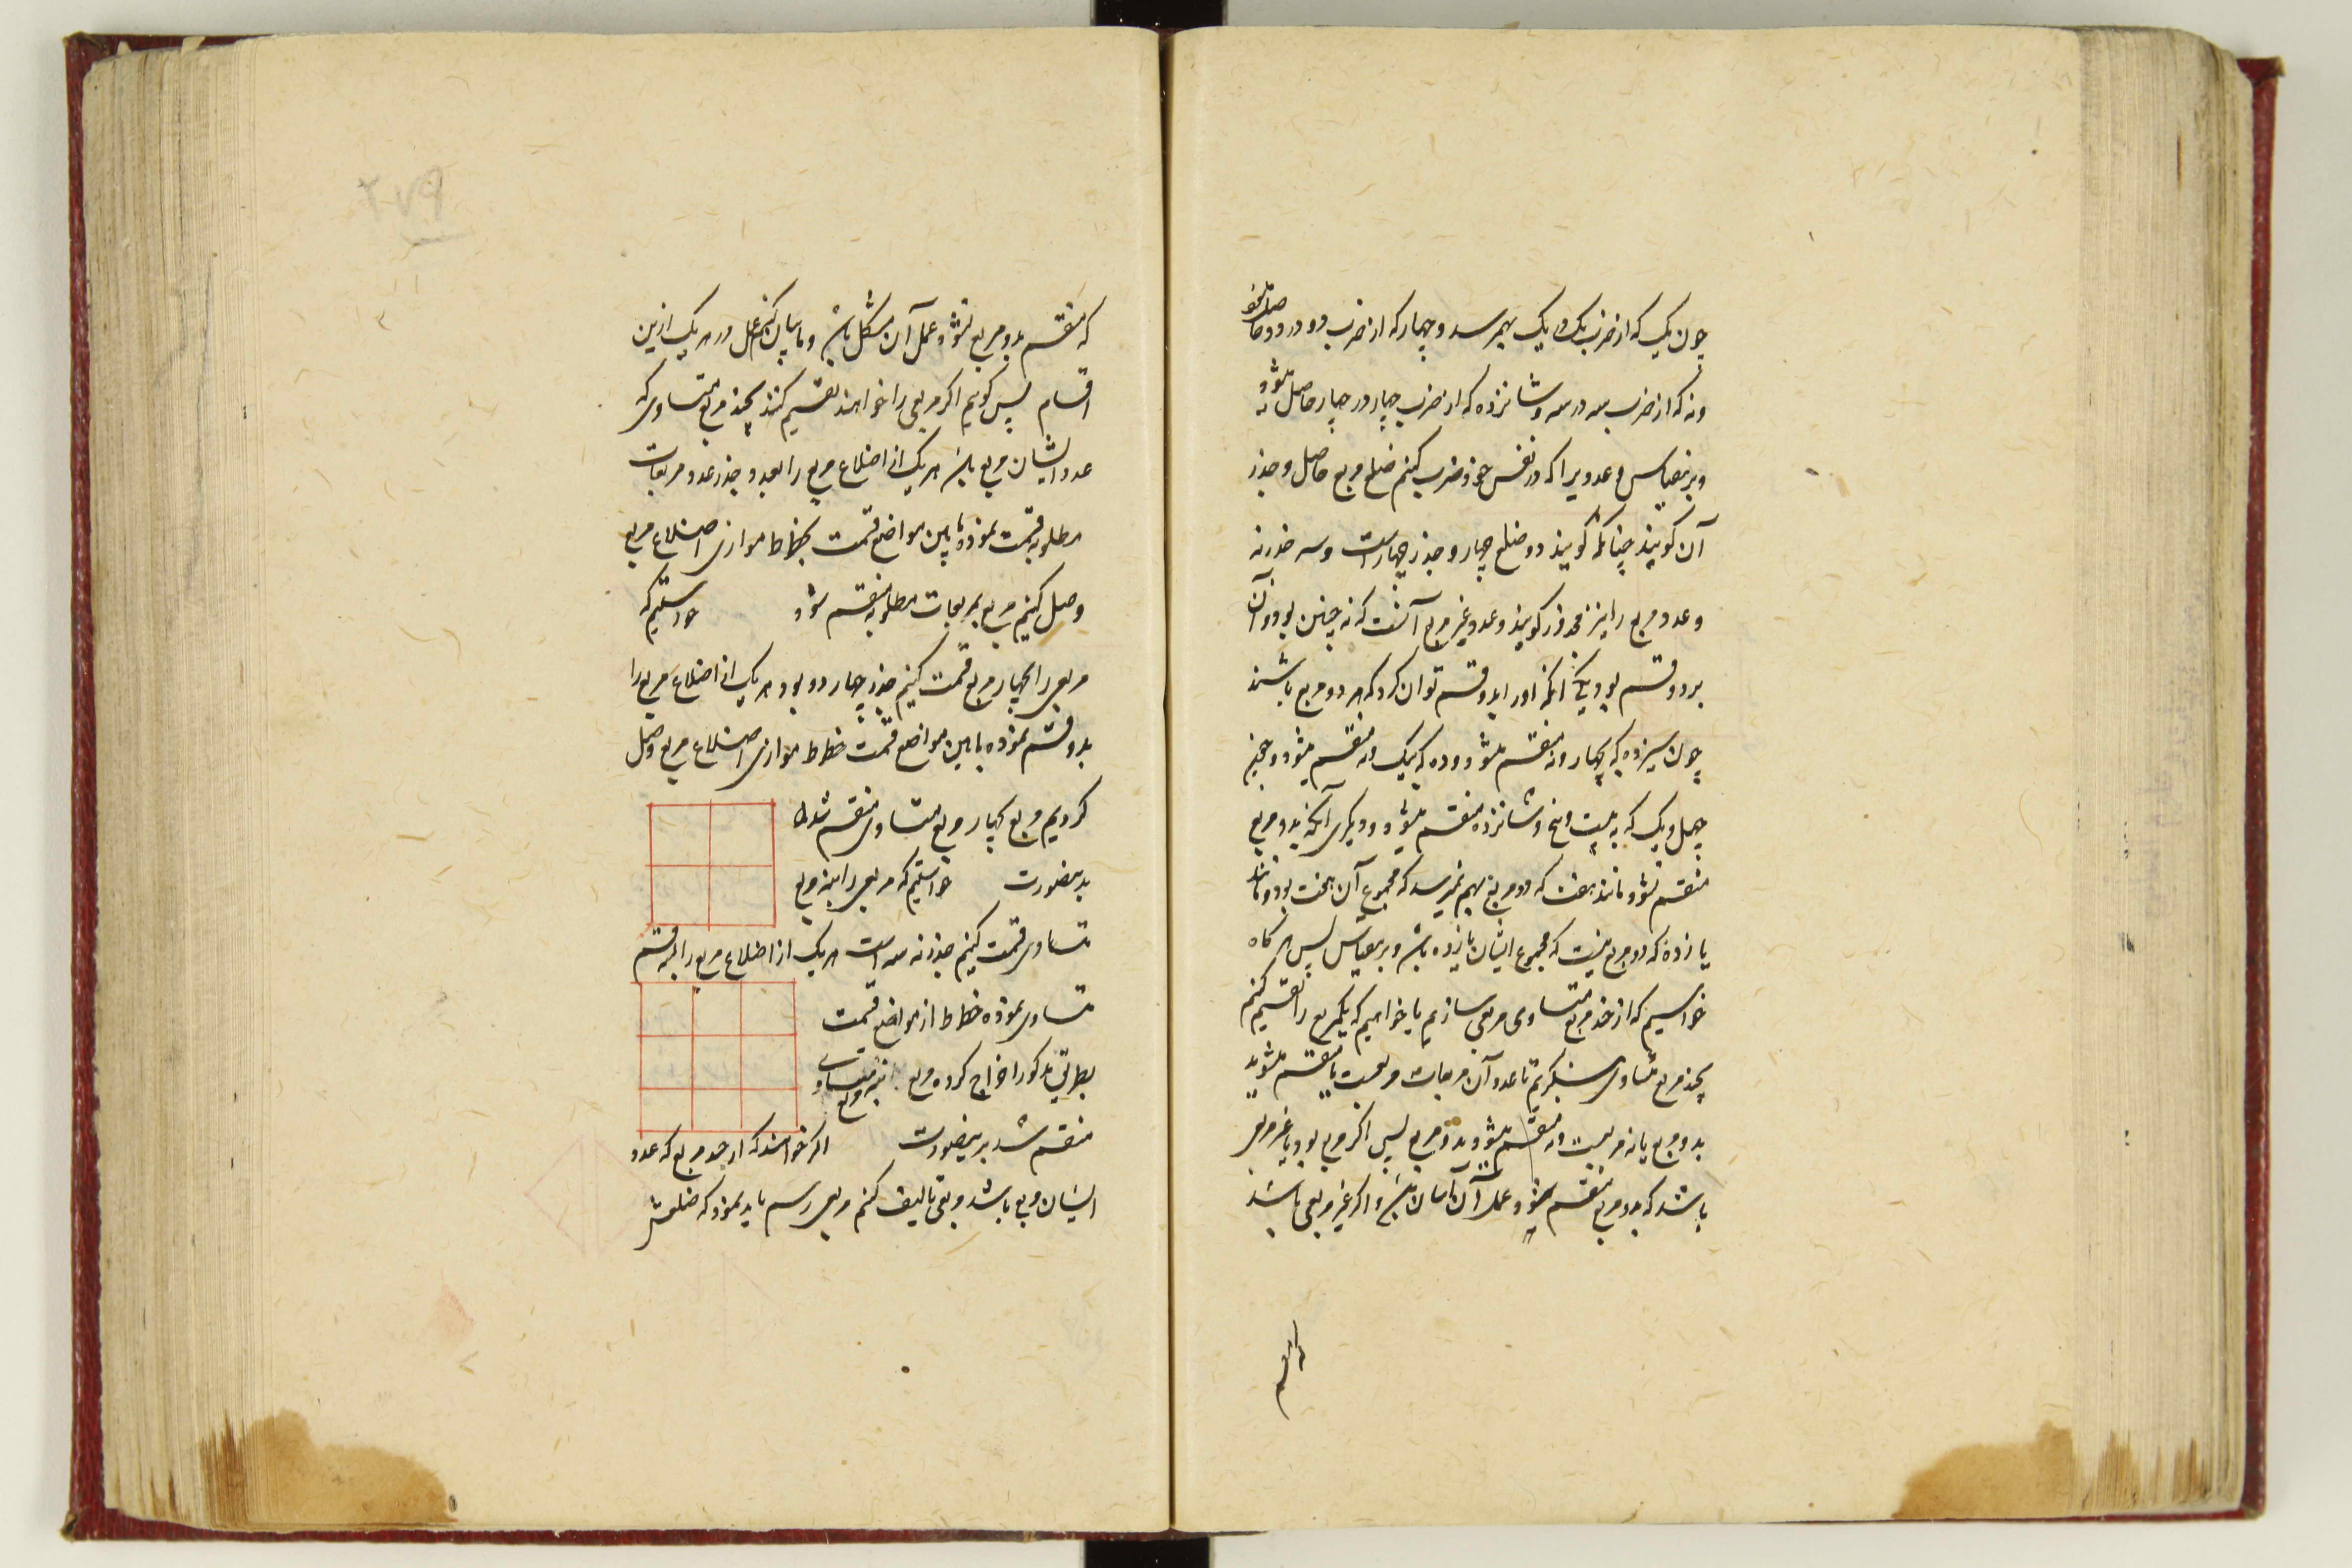 چون یک که از ضرب یک در یک بهم رسد و چهار که از ضرب دو در دو حاصل شود
و نه که از ضرب سه در سه و شانزده که از ضرب چهار در چهار حاصل شود
و برینقیاس و عددیرا که در نفس خود ضرب کنیم ضلع مربع حاصل و جذر
آن گویند چنانکه گویند دو ضلع چهار و جذر چهار است و سه جذر نه
و عدد مربع را نیز مجذور گویند و عدد غیر مربع آنست که نه چنین بود و آن
بر دو قسم بود یکی آنکه او را بدو قسم توان کرد که هر دو مربع باشند
چون سیزده که بچهار و نه منقسم میشود و ده که بیک و نه منقسم میشود و همچنین
چهل و یک که به بیست و پنج و شانزده منقسم میشود و دیگری آنکه بدو مربع
منقسم نشود مانند هفت که دو مربع بهم نمیرسد که مجموع آن هفت بود و مانند
یازده که دو مربع نیست که مجموع ایشان یازده باشد و برینقیاس پس هر گاه
خواستیم که از چند مربع متساوی مربعی سازیم یا خواهیم که یکمربع را تقسیم کنیم
بچند مربع متساوی بنگریم تا عدد آن مربعات مربعست یا منقسم میشود
بدو مربع یا نه مربعست و نه منقسم میشود بدو مربع پس اگر مربع بود یا غیر مربعی
باشد که بدو مربع منقسم شود عمل آن آسان باشد و اگر غیر مربعی باشد
که منقسم
که منقسم بدو مربع نشود عمل آن مشکل باشد و ما بیان کنیم عمل در هر یک ازین
اقسام پس گوییم اگر مربعی را خواهند تقسیم کنند بچند مربع متساوی که
عدد ایشان مربع باشد هر یک از اضلاع مربع را بعدد جذر عدد مربعات
مطلوبه قسمت نموده مابین مواضع قسمت بخطوط موازی اضلاع مربع
وصل کنیم مربع بمربعات مطلوبه منقسم شود خواستیم که
مربعی را بچهار مربع قسمت کنیم جذر چهار دو بود هر یک از اضلاع مربع را
بدو قسم نموده مابین مواضع قسمت خطوط موازی اضلاع مربع وصل
کردیم مربع بچهار مربع متساوی منقسم شد
بدینصورت خواستیم که مربعی را بنه مربع
متساوی قسمت کنیم جذر نه سه است هر یک از اضلاع مربع را بسه قسم
متساوی نموده خطوط از مواضع قسمت
بطریق مذکور اخراج کرده مربع بنه مربع متساوی
منقسم شد برینصورت اگر خواهند که از چند مربع که عدد
ایشان مربع باشد مربعی تالیف کنیم مربعی رسم باید نمود که ضلعش
۲۷۹